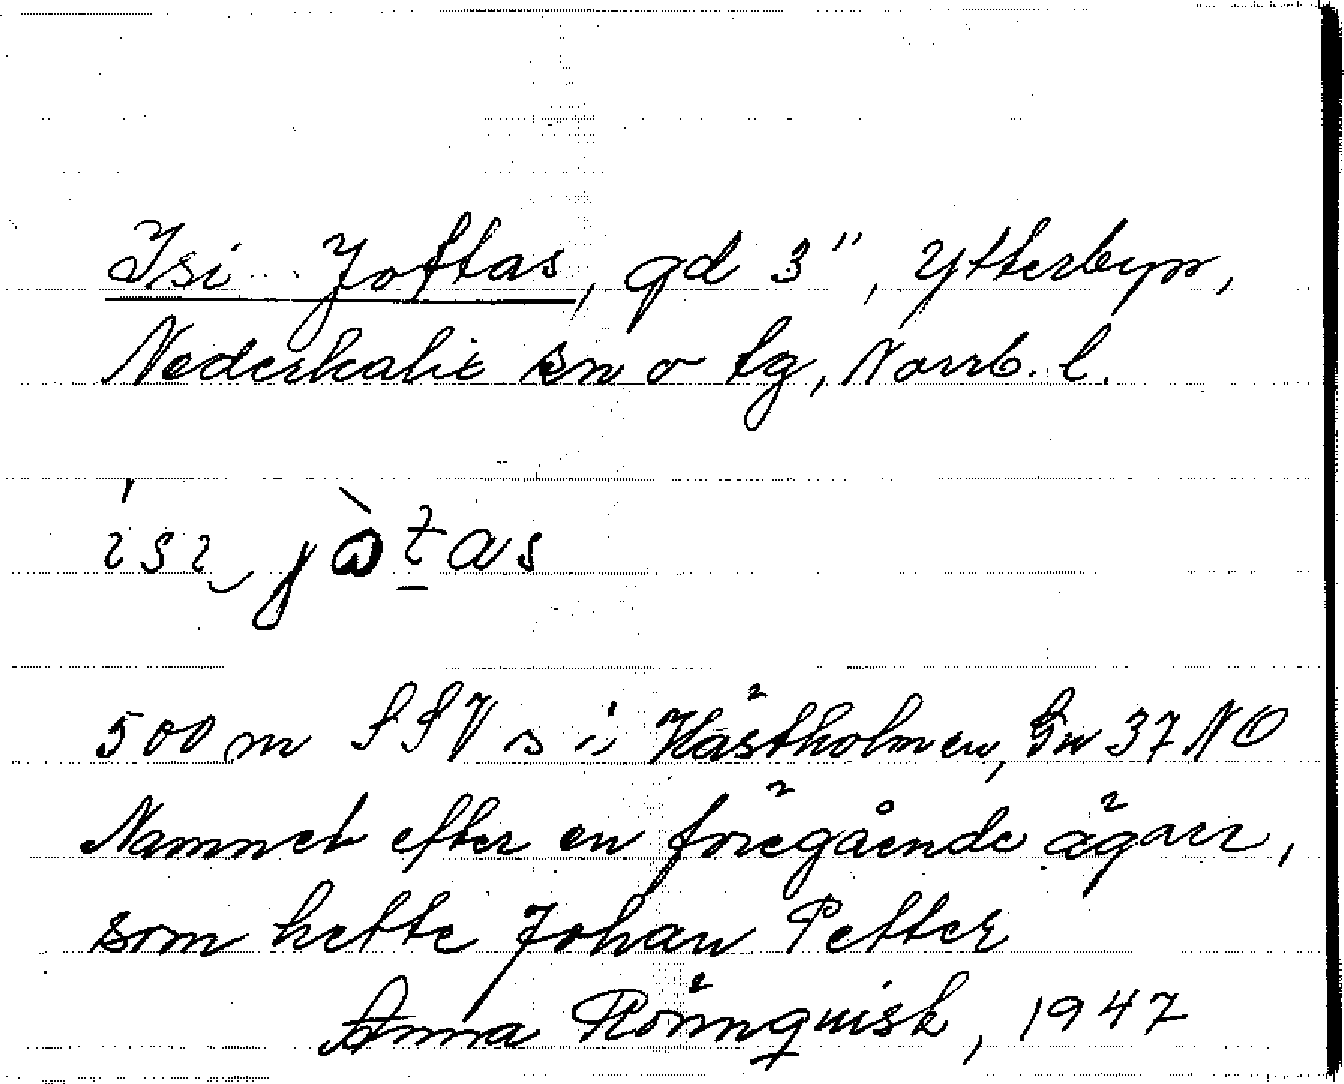 Isi Jottas, gd 3", Ytterbyn,
Nederkalix sn o tg, Norrb. l.
ísı jòtas
500 m SSV s i Hästholmen, Gn 37 NO
Namnet efter en föregående ägare,
som hette Johan Petter
Anna Rönnquist, 1947